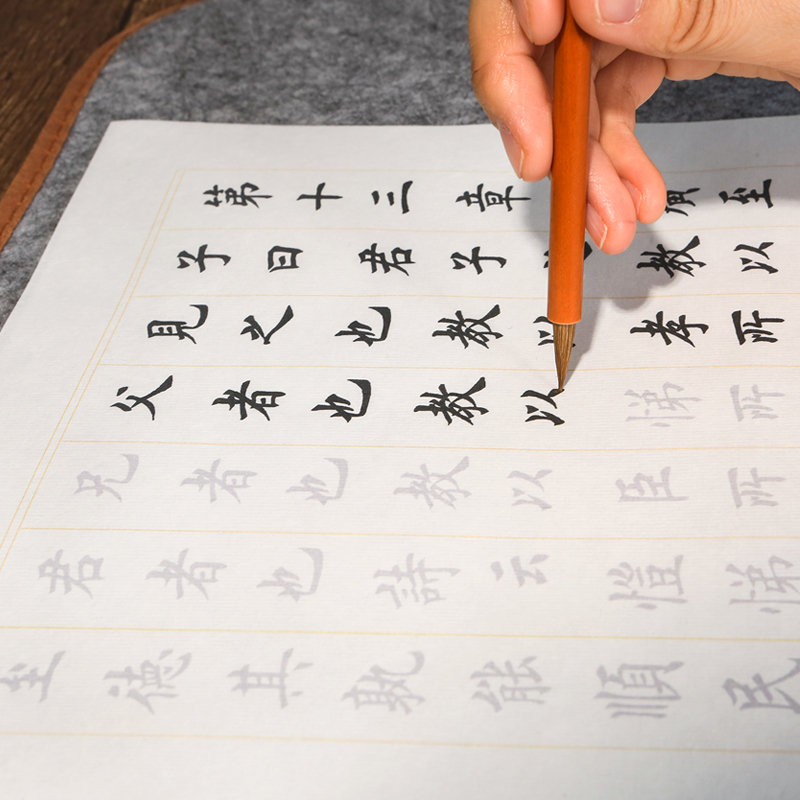 第十三章廣至
子曰君子教以
見之也教以孝所
父者也教以悌所
兄者也教以臣所
君者也詩云愷悌
至德其孰能順民